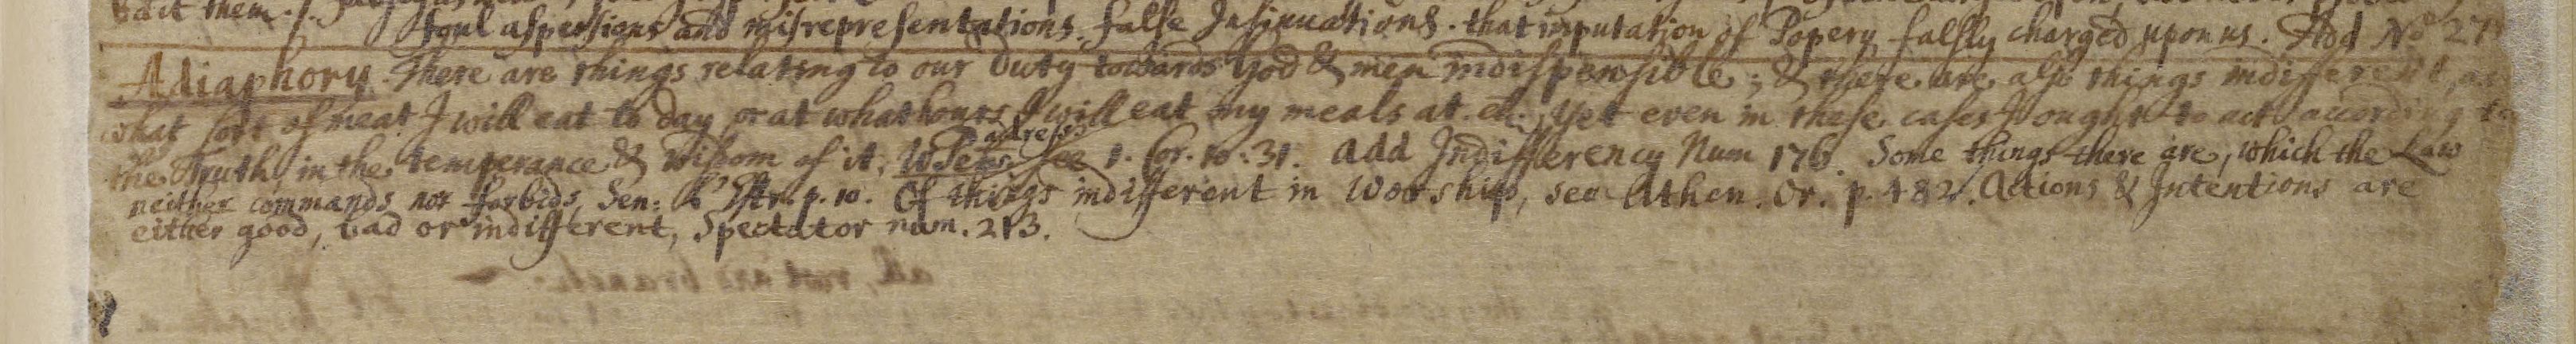 foul aspersions and misrepresentations. false Insinuations. that imputation of Popery falsly charged upon us. Add No 27
Adiaphory. There are things relating to our Duty towards God & men indispensible; & there are also things indifferent, as
what sort of meat I will eat to day, or at what hours I will eat my meals at. &c; yet even in these cases I ought to act according to
the Truth, in the temperance & wisdom of it, W Pens address see 1. Cor. 10: 31. add Indifferency Num 176. Some things there are, which the Law
neither commands nor forbids, Sen: p. 10. Of things indifferent in Worship, see Athen. Or. p. 482. Actions & Intentions are
either good, bad or indifferent, Spectator num. 213.